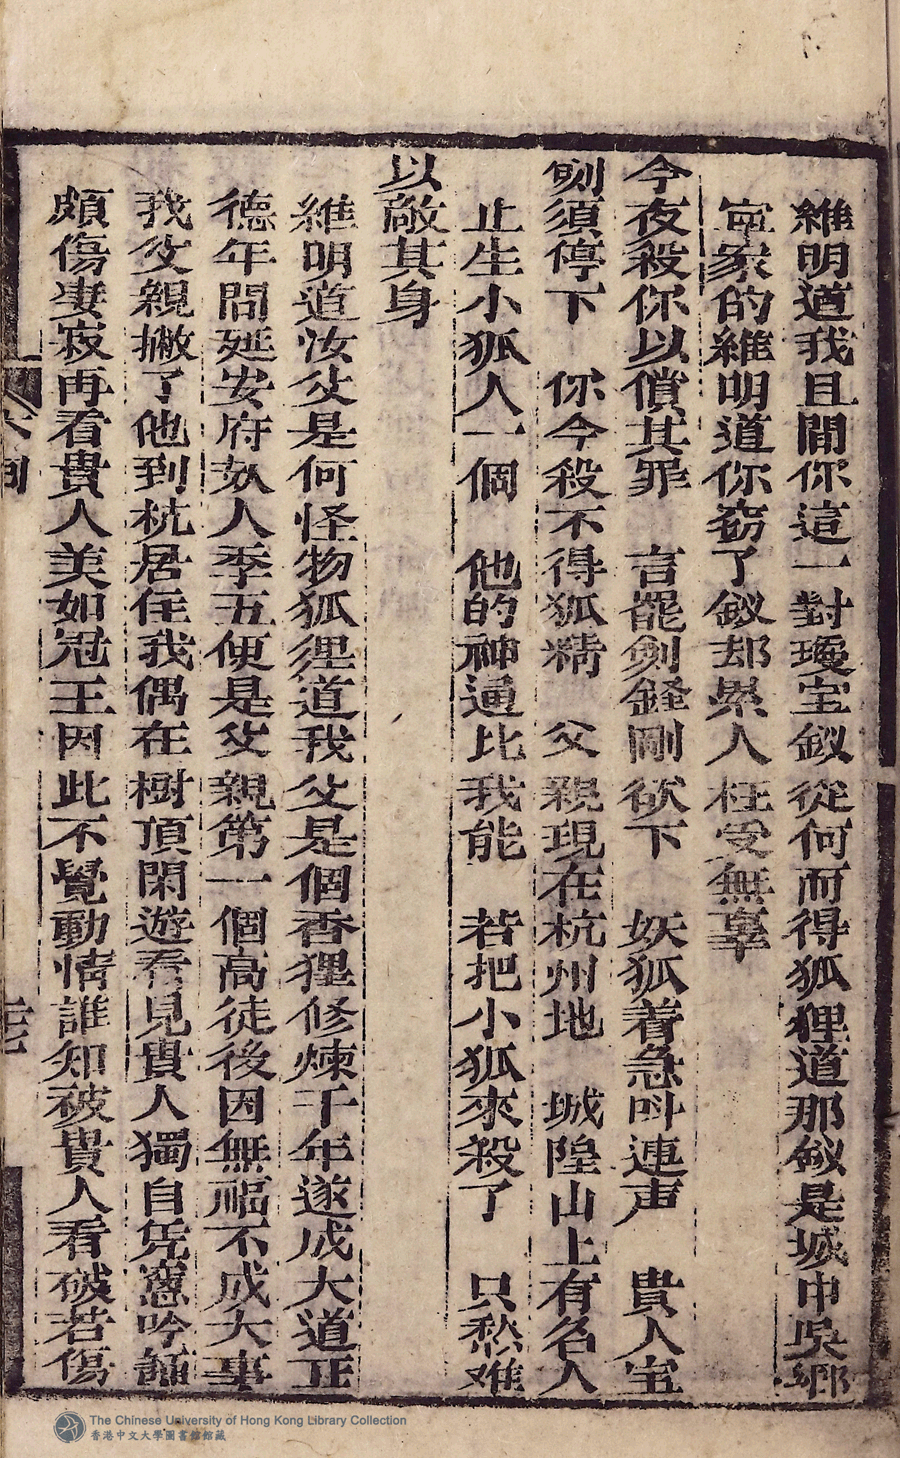 維明道我且問你這一對瓊宝釵從何而得狐狸道那釵是城中吳鄉
宦家的維明道你竊了釵却累人枉受無辜
今夜殺你以償其罪　言罷劍鋒剛欲下　妖狐着急叫連声　貴人宝
劍須停下　你今殺不得狐精　父親現在杭州地　城隍山上有名人
止生小狐人一個　他的神通比我能　若把小狐來殺了　只愁难
以敵其身
維明道汝父是何怪物狐狸道我父是個香狸修煉千年遂成大道正
德年間延安府妖人季五便是父親第一個高徒後因無福不成大事
我父親撇了他到杭居住我偶在樹頂閑遊看見貴人獨自凭窓吟誦
頗傷凄寂再看貴人美如冠王因此不覺動情誰知被貴人看破若傷
The Chinese University of Hong Kong Library Collection
香港中文大學圖書館館藏